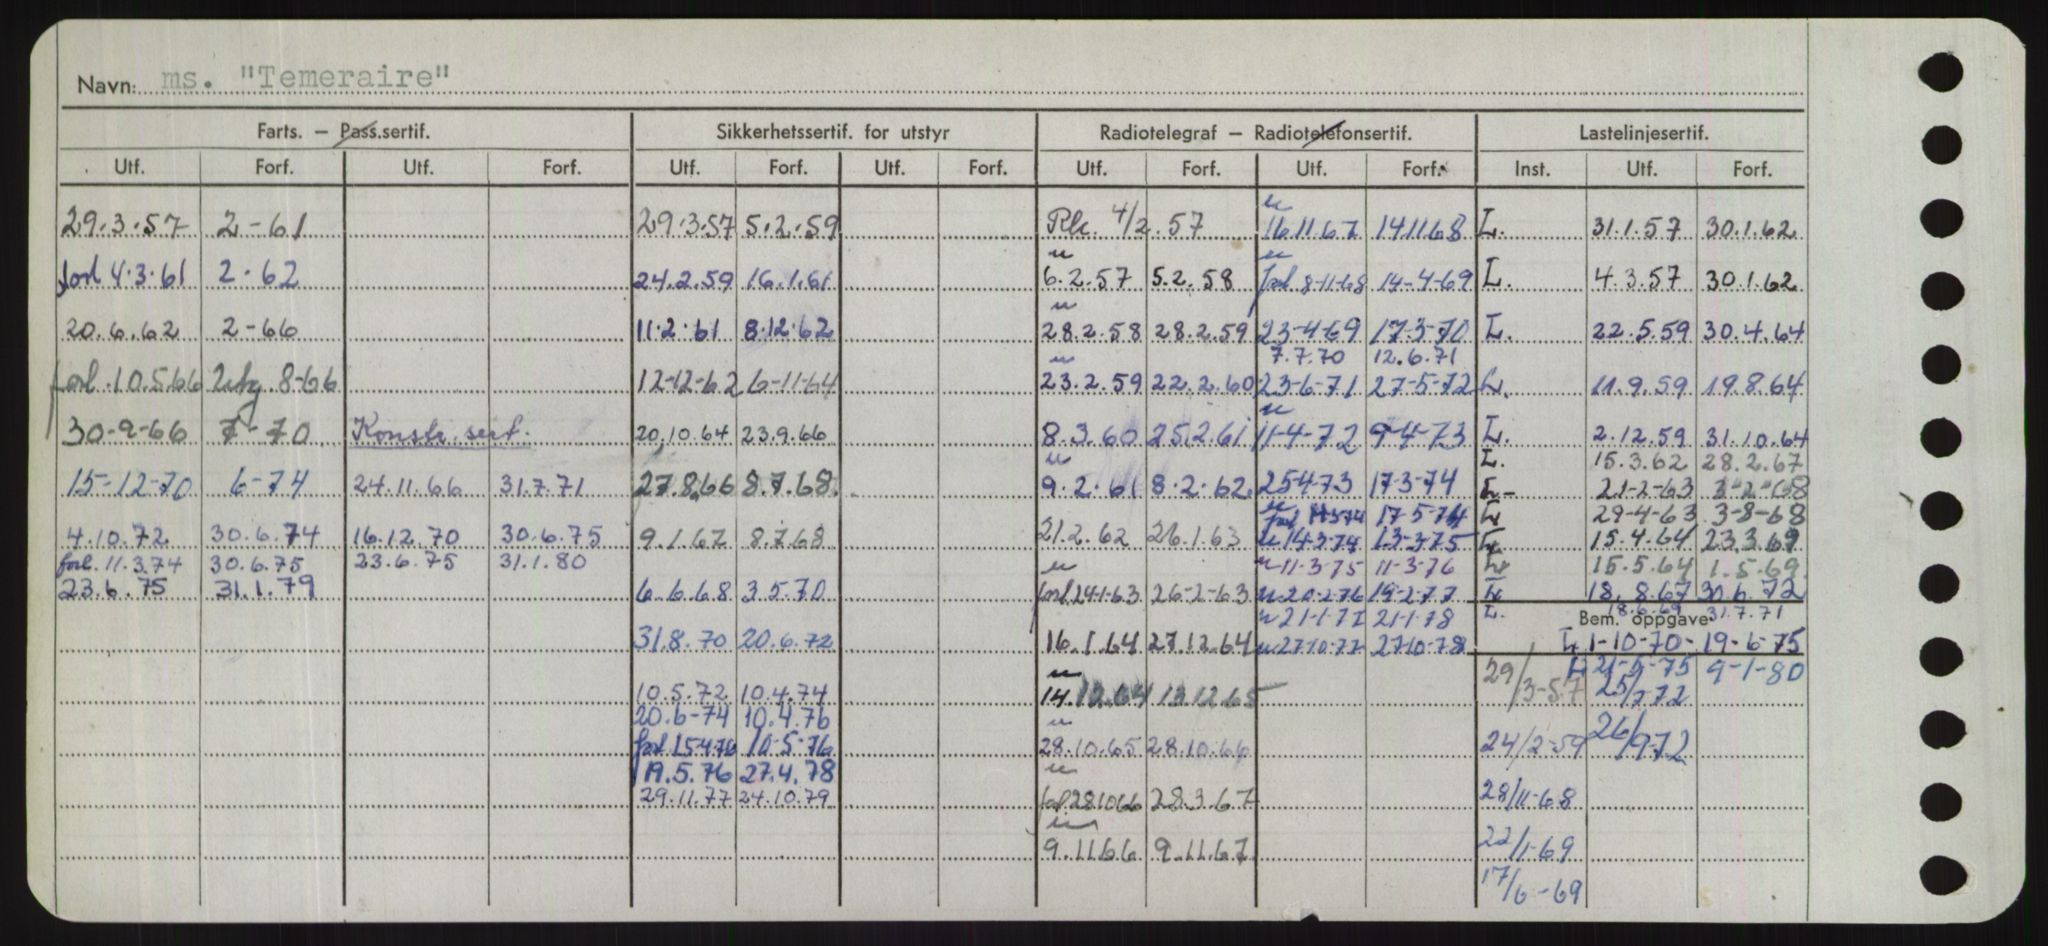 Navn: ms. "Temeraire"
Farts. – Pass.sertif. Sikkerhetssertif. for utstyr Radiotelegraf – Radiotelefonsertif. Lastelinjesertif.
Utf. Forf. Utf. Forf. Utf. Forf. Utf. Forf. Utf. Forf. Utf. Forf. Inst. Utf. Forf.
29.3.57 2-61 29.3.57 5.2.59 4/2.57 16.11.67 14.11.68 L. 31.1.57 30.1.62
forl 4.3.61 2.62 24.2.59 16.1.61 6.2.57 5.2.58 forl 8-11-68 14-4-69 L. 4.3.57 30.1.62
20.6.62 2-66 11.2.61 8.12.62 28.2.58 28.2.59 23-4-69 17-3-70 L. 22.5.59 30.4.64
7.7.70 12.6.71
forl. 10.5.66 8-66 12-12-62 6-11-64 23.2.59 22.2.60 23-6-71 27-5-72 L. 11.9.59 19.8.64
30-9-66 7-70 Konstr. sert. 20.10.64 23.9.66 8.3.60 25.2.61 11-4-72 9-4-73 L. 2.12.59 31.10.64
L. 15.3.62 28.2.67
15-12-70 6-74 24.11.66 31.7.71 27.8.66 8.7.68. 9.2.61 8.2.62 25-4-73 17-3-74 L- 21-2-63 3-2-68
forl 17-5-74 L 29-4-63 3-8-68
4.10.72 30.6.74 16.12.70 30.6.75 9.1.67 8.7.68 21.2.62 26.1.63 14-3-74 13-3-75 L 15.4.64 23.3.69
forl. 11.3.74 30.6.75 23.6.75 31.1.80 11-3-75 11-3-76 L 15.5.64 1.5.69
23.6.75 31.1.79 6.6.68 3.5.70 forl 24-1-63 26-2-63 20-2-76 19-2-77 L 18.8.67 30.6.72
21-1-77 21-1-78 L. 18.6.69 31.7.71
Bem. oppgave
31.8.70 20.6.72 16.1.64 27.12.64 27-10-77 27-10-78 L 1-10-70- 19-6-75
29/3-57 21-5-75 9-1-80
10.5.72 10.4.74 14.12.64 13.12.65 25/7-72
20.6-74 10.4.76
forl 15-4-76 10-5-76 28.10.65 28.10.66 24/2-59 26/9-72
19.5.76 27.4.78
29.11.77 24.10.79 forl 28.10.66 28.3.67 28/11-68
9.11.66 9.11.67 22/1-69
17/6-69